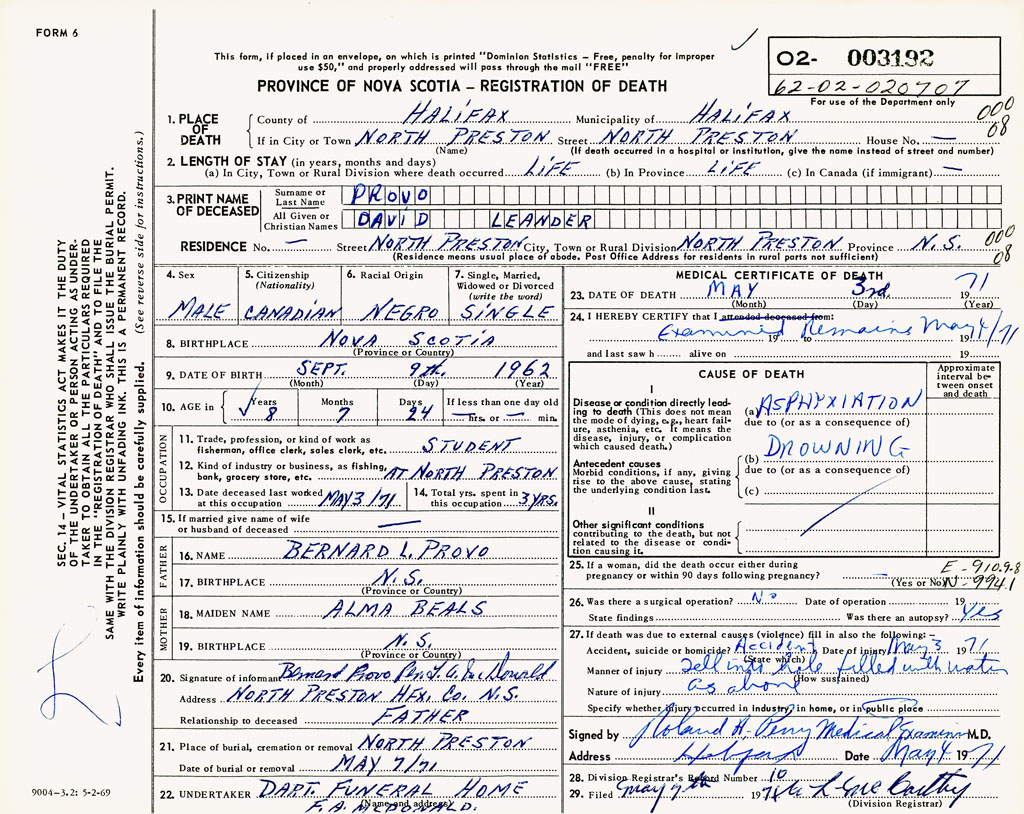 FORM 6
This form, if placed in an envelope, on which is printed "Dominion Statistics – Free, penalty for improper
use $50," and properly addressed will pass through the mail "FREE"
PROVINCE OF NOVA SCOTIA – REGISTRATION OF DEATH
02- 003192
62-02-020707
For use of the Department only
1. PLACE OF DEATH
County of HALIFAX Municipality of HALIFAX 000
If in City or Town NORTH PRESTON Street NORTH PRESTON House No. — 08
(Name) (If death occurred in a hospital or institution, give the name instead of street and number)
2. LENGTH OF STAY (in years, months and days)
(a) In City, Town or Rural Division where death occurred LIFE (b) In Province LIFE (c) In Canada (if immigrant) —
3. PRINT NAME OF DECEASED
Surname or Last Name PROVO
All Given or Christian Names DAVID LEANDER
RESIDENCE No. — Street NORTH PRESTON City, Town or Rural Division NORTH PRESTON Province N.S. 000
(Residence means usual place of abode. Post Office Address for residents in rural parts not sufficient) 08
4. Sex MALE
5. Citizenship (Nationality) CANADIAN
6. Racial Origin NEGRO
7. Single, Married, Widowed or Divorced (write the word) SINGLE
8. BIRTHPLACE NOVA SCOTIA
(Province or Country)
9. DATE OF BIRTH SEPT. 9th. 1962
(Month) (Day) (Year)
10. AGE in Years 8 Months 7 Days 24 If less than one day old — hrs. or — min.
OCCUPATION
11. Trade, profession, or kind of work as
fisherman, office clerk, sales clerk, etc. STUDENT
12. Kind of industry or business, as fishing,
bank, grocery store, etc. AT NORTH PRESTON
13. Date deceased last worked
at this occupation MAY 3/71
14. Total yrs. spent in
this occupation 3 YRS.
15. If married give name of wife
or husband of deceased —
FATHER
16. NAME BERNARD L. PROVO
17. BIRTHPLACE N.S.
(Province or Country)
MOTHER
18. MAIDEN NAME ALMA BEALS
19. BIRTHPLACE N.S.
(Province or Country)
20. Signature of informant Bernard Provo Per F. A. McDonald
Address NORTH PRESTON HFX. CO. N.S.
Relationship to deceased FATHER
21. Place of burial, cremation or removal NORTH PRESTON
Date of burial or removal MAY 7/71
22. UNDERTAKER DART. FUNERAL HOME
(Name and address)
F.A. MCDONALD.
MEDICAL CERTIFICATE OF DEATH
23. DATE OF DEATH MAY 3rd. 1971
(Month) (Day) (Year)
24. I HEREBY CERTIFY that I attended deceased from:
Examined Remains May 4/71
19 to 19
and last saw h alive on 19
CAUSE OF DEATH
Approximate interval between onset and death
I
Disease or condition directly leading to death (This does not mean the mode of dying, e.g., heart failure, asthenia, etc. It means the disease, injury, or complication which caused death.)
(a) ASPHYXIATION
due to (or as a consequence of)
(b) DROWNING
Antecedent causes
Morbid conditions, if any, giving rise to the above cause, stating the underlying condition last.
due to (or as a consequence of)
(c)
II
Other significant conditions
contributing to the death, but not related to the disease or condition causing it.
25. If a woman, did the death occur either during
pregnancy or within 90 days following pregnancy? —
(Yes or No)
E-910.9-8
N-994.1
26. Was there a surgical operation? No Date of operation 19
State findings Was there an autopsy? Yes
27. If death was due to external causes (violence) fill in also the following:–
Accident, suicide or homicide? Accident Date of injury May 3 1971
(State which)
Manner of injury Fell into hole filled with water
(How sustained)
Nature of injury as above
Specify whether injury occurred in industry, in home, or in public place
Signed by Roland A. Perry Medical Examiner M.D.
Address Halifax Date May 4 1971
28. Division Registrar's Record Number 10
29. Filed May 7th 1971 McCarthy
(Division Registrar)
SEC. 14 – VITAL STATISTICS ACT MAKES IT THE DUTY
OF THE UNDERTAKER OR PERSON ACTING AS UNDER-
TAKER TO OBTAIN ALL THE PARTICULARS REQUIRED
IN THE "REGISTRATION OF DEATH" AND TO FILE THE
SAME WITH THE DIVISION REGISTRAR WHO SHALL ISSUE THE BURIAL PERMIT.
WRITE PLAINLY WITH UNFADING INK. THIS IS A PERMANENT RECORD.
Every item of information should be carefully supplied. (See reverse side for instructions.)
9004-3.2: 5-2-69